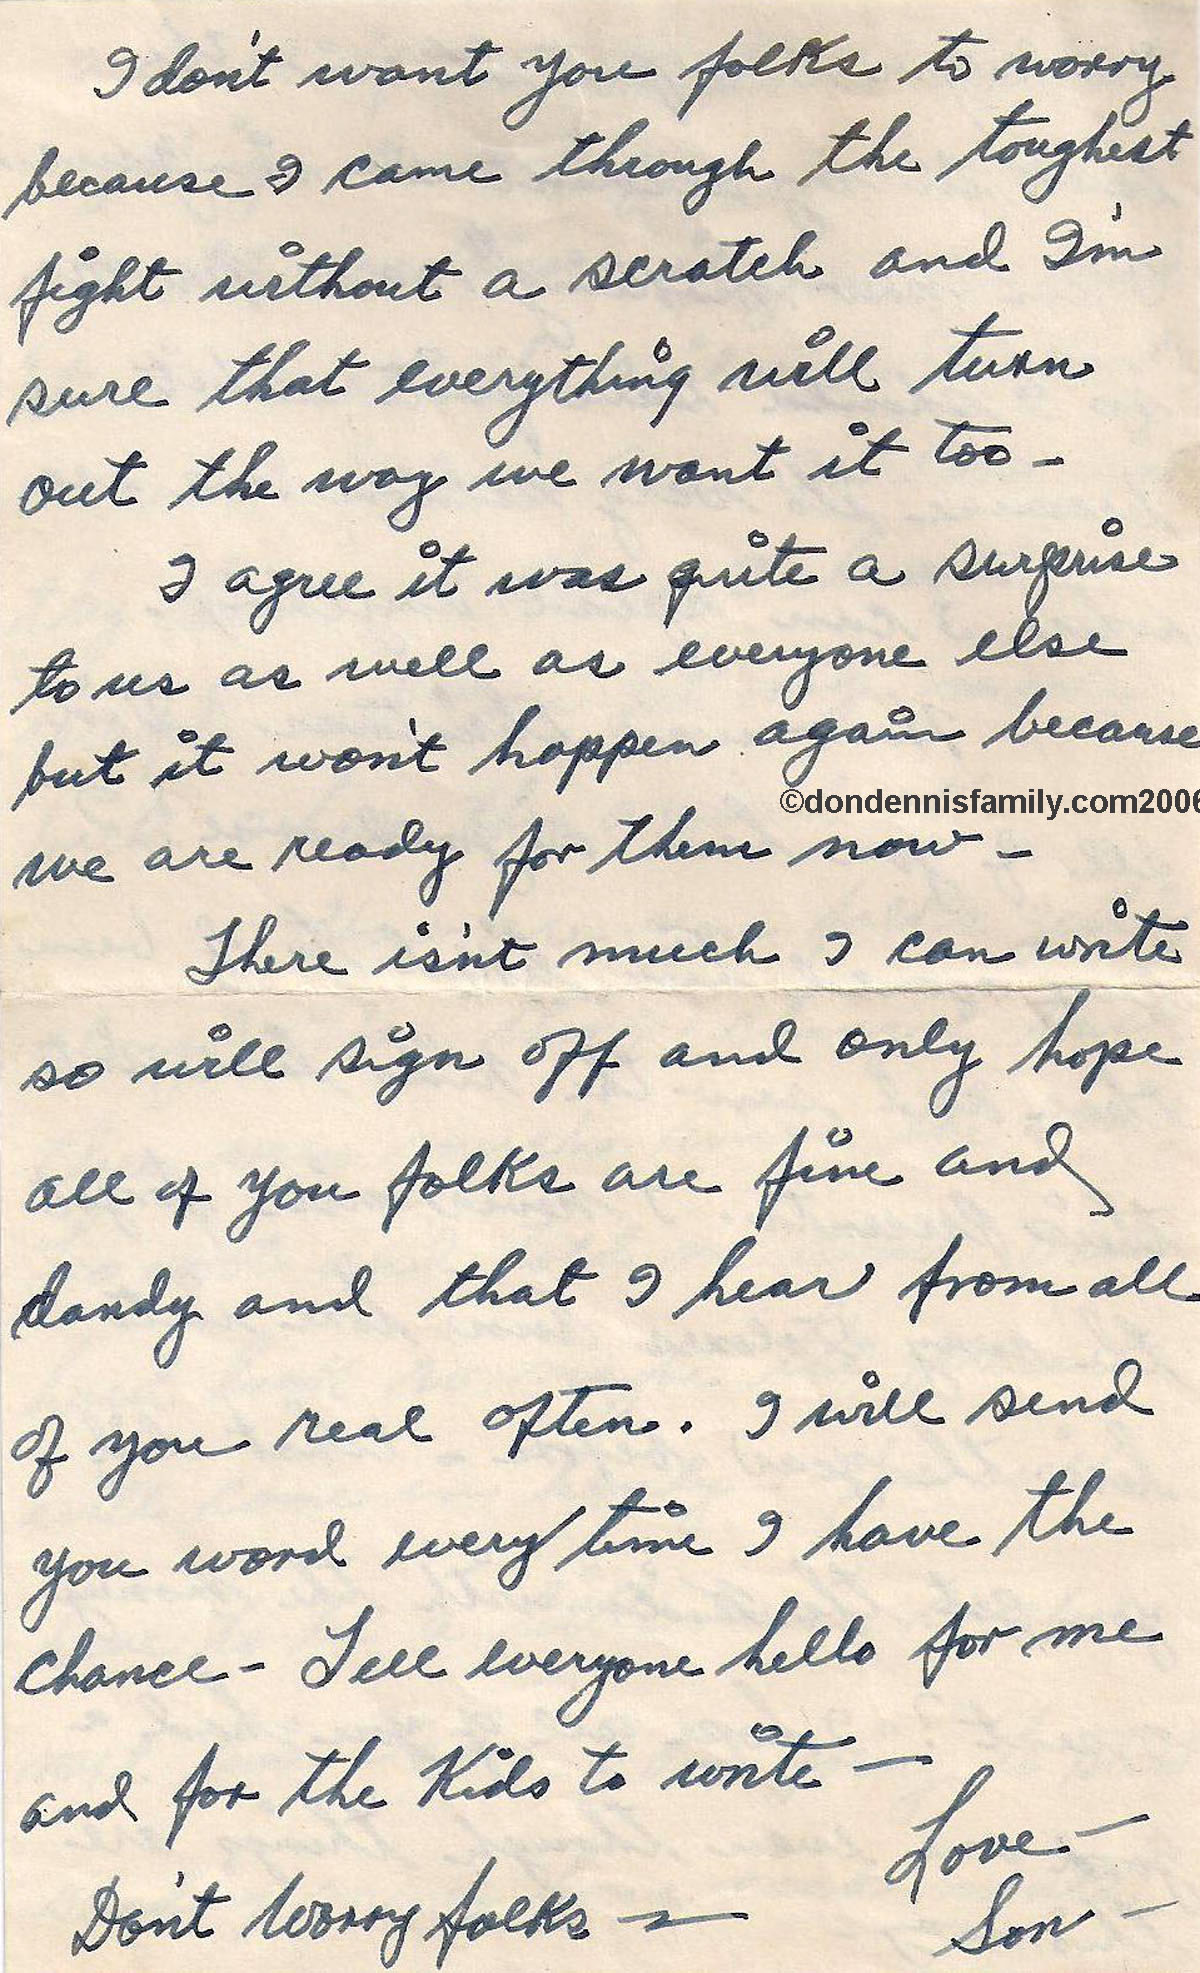 I don't want you folks to worry
because I came through the toughest
fight without a scratch and I'm
sure that everything will turn
out the way we want it too -
I agree it was quite a surprise
to us as well as everyone else
but it won't happen again because
©dondennisfamily.com2006
we are ready for them now -
There isn't much I can write
so will sign off and only hope
all of you folks are fine and
dandy and that I hear from all
of you real often. I will send
you word every/time I have the
chance - Tell everyone hello for me
and for the Kids to write -
Love -
Don't Worry folks -
Son -